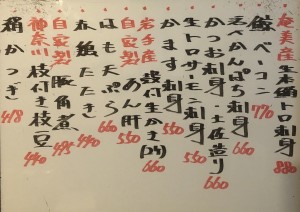 奄美産 生本鮪トロ刺身 880
鯨ベーコン 770
活〆かんぱち刺身 660
かつお刺身・土佐造り 660
生トロサーモン刺身 550
かます刺身 550
岩手産 殻付生かき(2ケ) 660
自家製 あん肝 550
はも天ぷら 660
赤鶏たたき 440
自家製 豚角煮 495
神奈川 枝付き枝豆 440
絹かつぎ 418